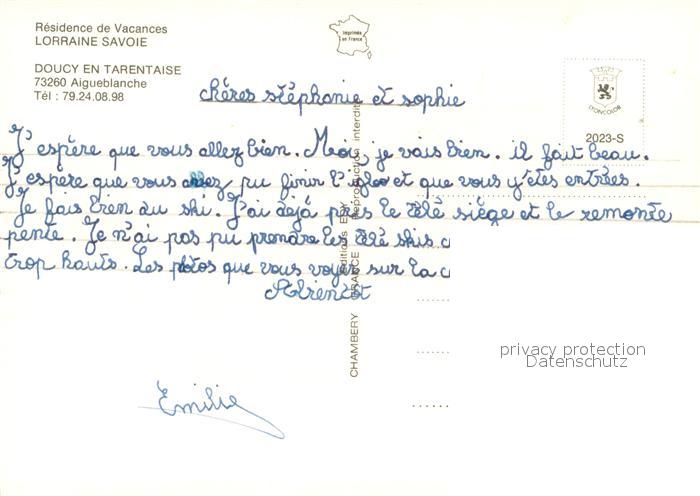 Résidence de Vacances
LORRAINE SAVOIE
DOUCY EN TARENTAISE
73260 Aigueblanche
Tél : 79.24.08.98
Imprimée
en France
D'ONCOLOR
2023-S
chères stéphanie et sophie
J'espère que vous allez bien. Moi, je vais bien. il fait beau.
J'espère que vous avez pu finir l'igloo et que vous y êtes entrées.
Je fais bien du ski. J'ai déjà pris le télé siège et le remonte
pente. Je n'ai pas pu prendre les télé skis
trop hauts. Les photos que vous voyez sur la c
A bientôt
Emilie
CHAMBERY FRANCE
Editions EDY
Reproduction interdite
privacy protection
Datenschutz